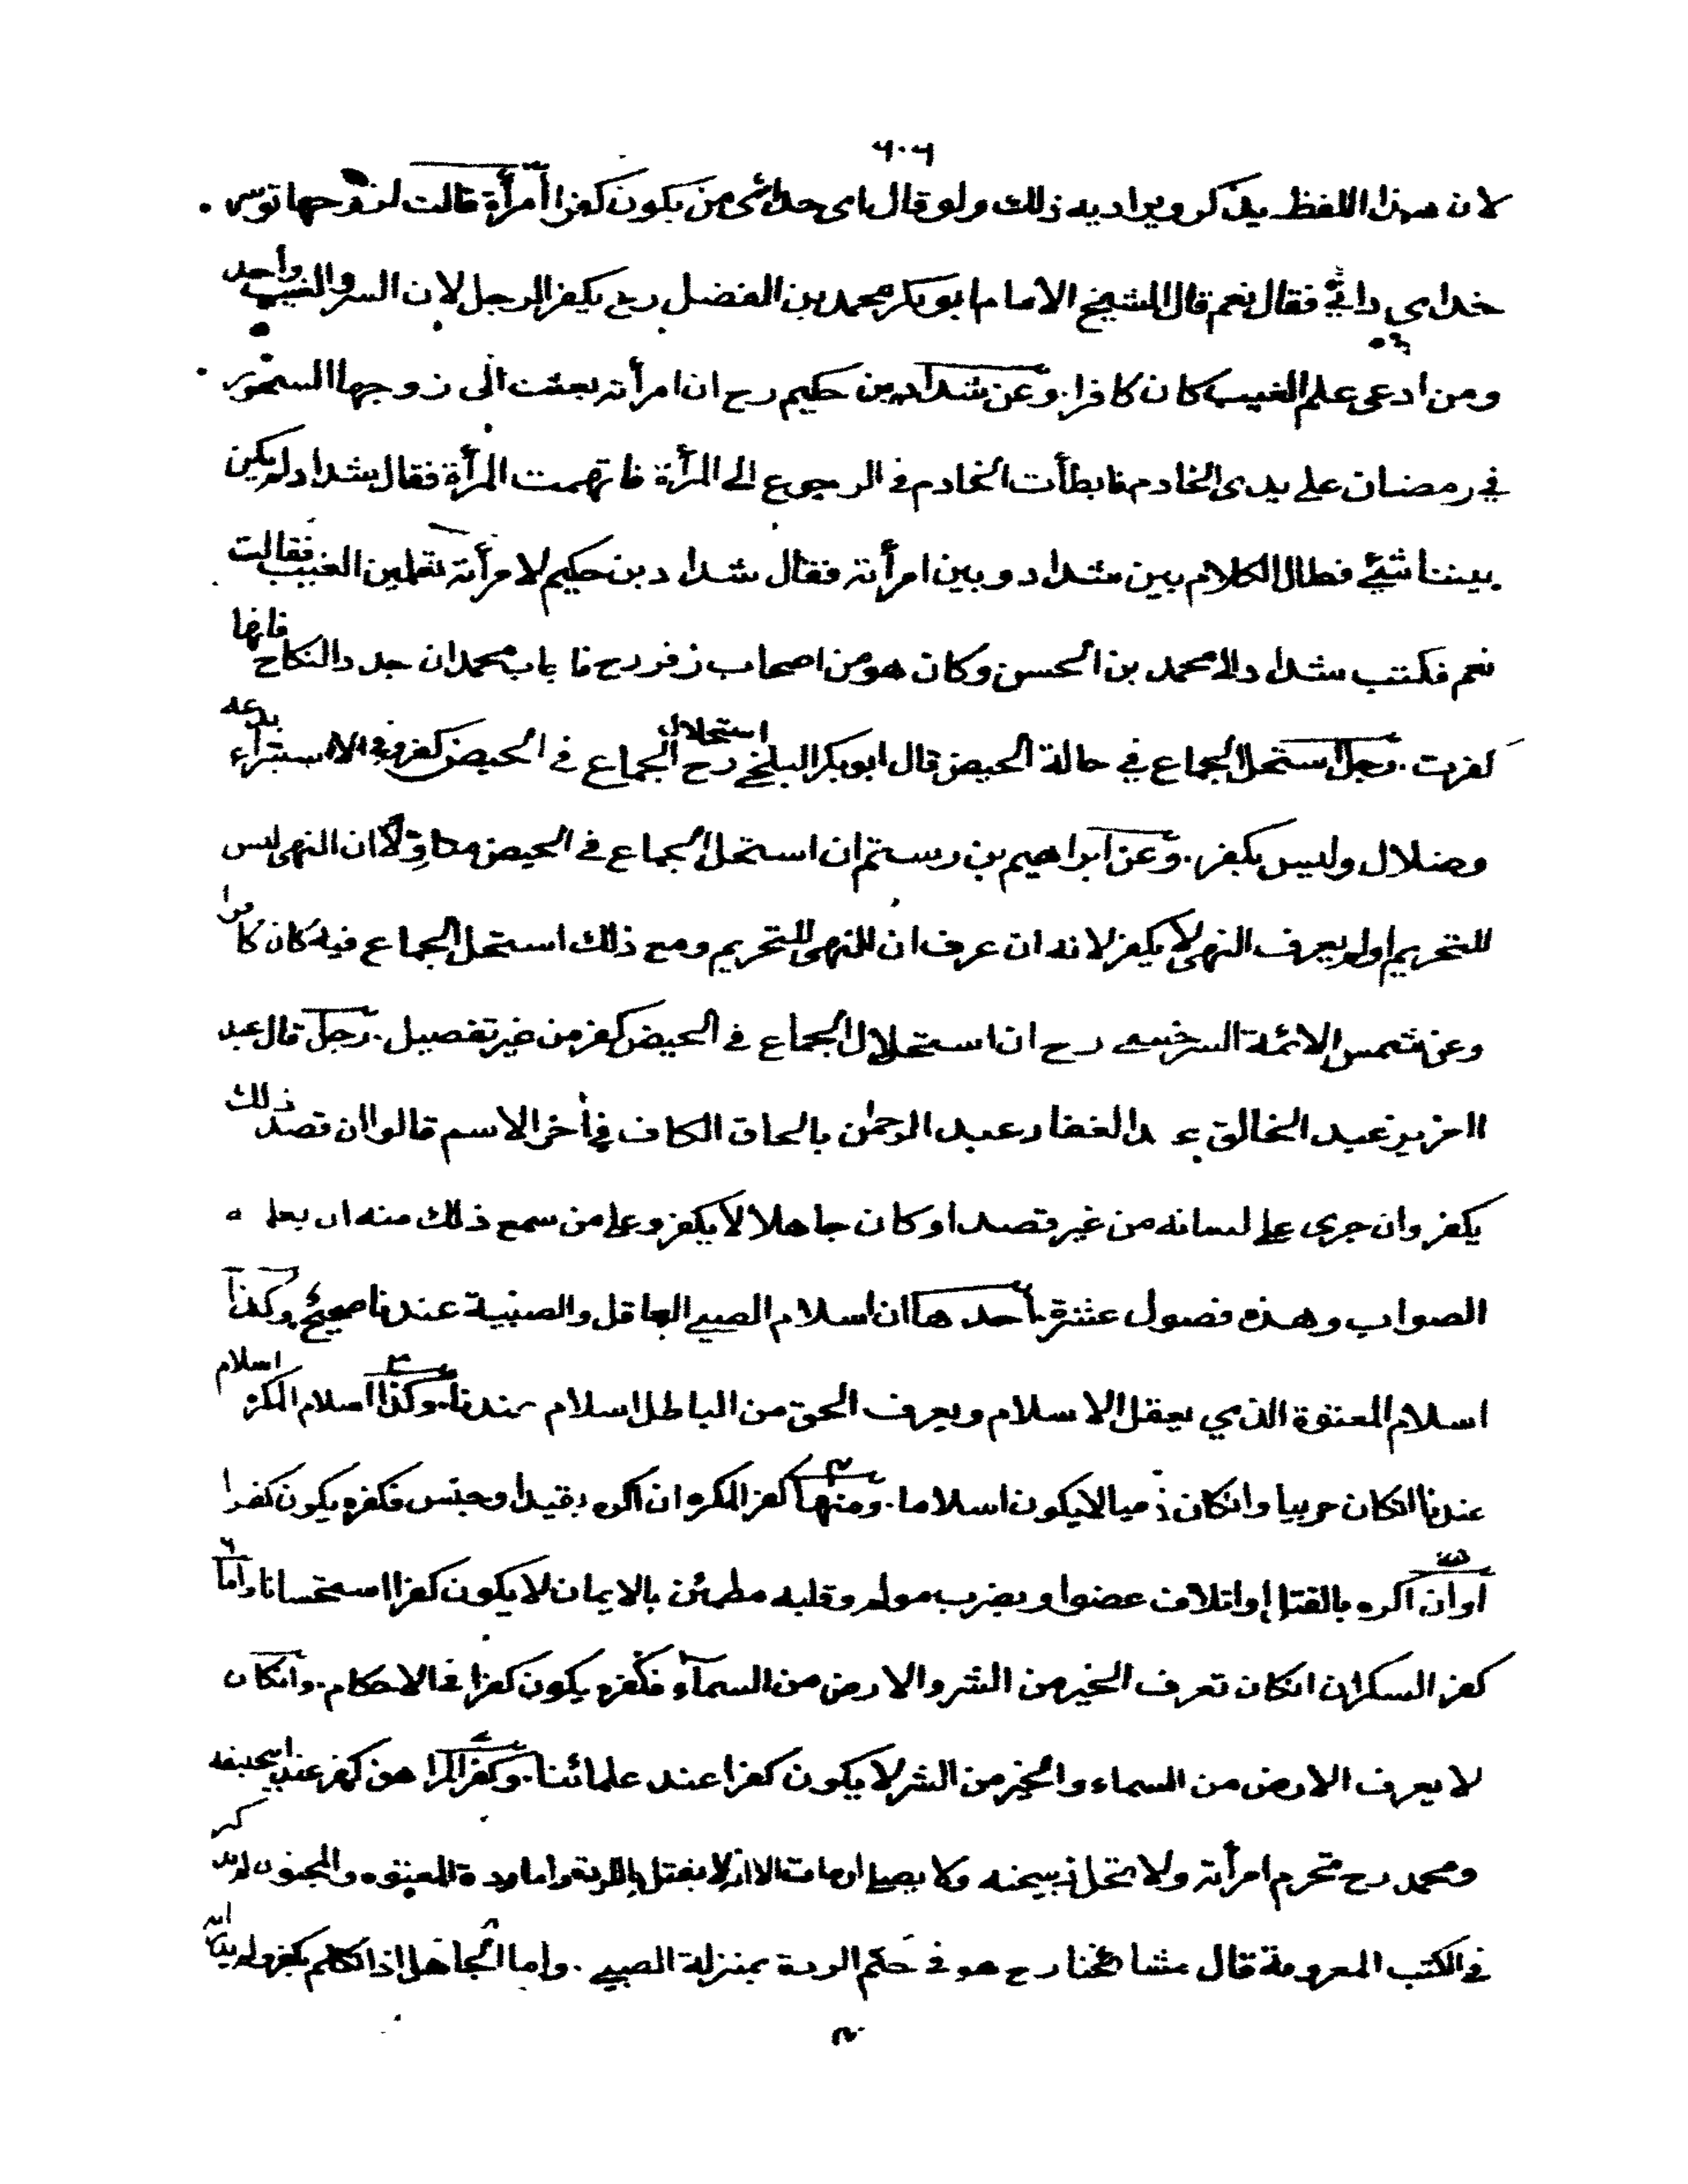 ٦٠٦
لان هذا اللفظ يذكر ويراد به ذلك ولو قال اى خدائى من يكون كفرا امرأة قالت لزوجها توسر
خداى دانى فقال نعم قال الشيخ الامام ابو بكر محمد بن الفضل رح يكفر الرجل لان السر والغيب واحد
ومن ادعى علم الغيب كان كافرا. وعن شداد بن حكيم رح ان امرأته بعثت الى زوجها السحور
في رمضان على يدى الخادم فابطأت الخادم في الرجوع الى المرأة فاتهمت المرأة فقال شداد لم يكن
بيننا شئ فطال الكلام بين شداد وبين امرأته فقال شداد بن حكيم لامرأته تعلمين الغيب فقالت
نعم فكتب شداد الى محمد بن الحسن وكان هو من اصحاب زفر رح فاجاب محمد ان جدد النكاح فانها
كفرت. رجل استحل الجماع في حالة الحيض قال ابو بكر البلخي رح استحلال الجماع في الحيض كفر وفي الاستبراء بدعة
وضلال وليس بكفر. وعن ابراهيم بن رستم ان استحل الجماع في الحيض متاولا ان النهى ليس
للتحريم اولم يعرف النهى لا يكفر لانه ان عرف ان النهى للتحريم ومع ذلك استحل الجماع فيه كان كافرا
وعن شمس الائمة السرخسى رح ان استحلال الجماع في الحيض كفر من غير تفصيل. رجل قال عبد
العزيز عبد الخالق عبد الغفار عبد الرحمن بالحاق الكاف في أخر الاسم قالوا ان قصد ذلك
يكفر وان جرى على لسانه من غير قصد او كان جاهلا لا يكفر وعلى من سمع ذلك منه ان يعلمه
الصواب وهذه فصول عشرة احدها ان اسلام الصبى العاقل والصبية عندنا صحيح وكذا
اسلام المعتوة الذي يعقل الاسلام ويعرف الحق من الباطل اسلام عندنا. وكذا اسلام المكره اسلام
عندنا انكان حربيا وانكان ذميا لا يكون اسلاما. ومنها كفر المكره ان اكره بقيد او حبس فكفره يكون كفرا
اوان اكره بالقتل او اتلاف عضو او بضرب مولم وقلبه مطمئن بالايمان لا يكون كفرا استحسانا واما
كفر السكران انكان تعرف الخير من الشر والارض من السمآء فكفره يكون كفرا في الاحكام. وانكان
لا يعرف الارض من السماء والخير من الشر لا يكون كفرا عند علمائنا. وكفر المراهق كفر عند ابيحنيفه
ومحمد رح تحرم امرأته ولا تحل ذبيحته ولا يصلى ان مات الا انه لا يقتل بالردة واما ردة المعتوه والمجنون لم يذكر
في الكتب المعروفة قال مشائخنا رح هو في حكم الردة بمنزلة الصبى. واما الجاهل اذا تكلم بكفر ولم يدر انه